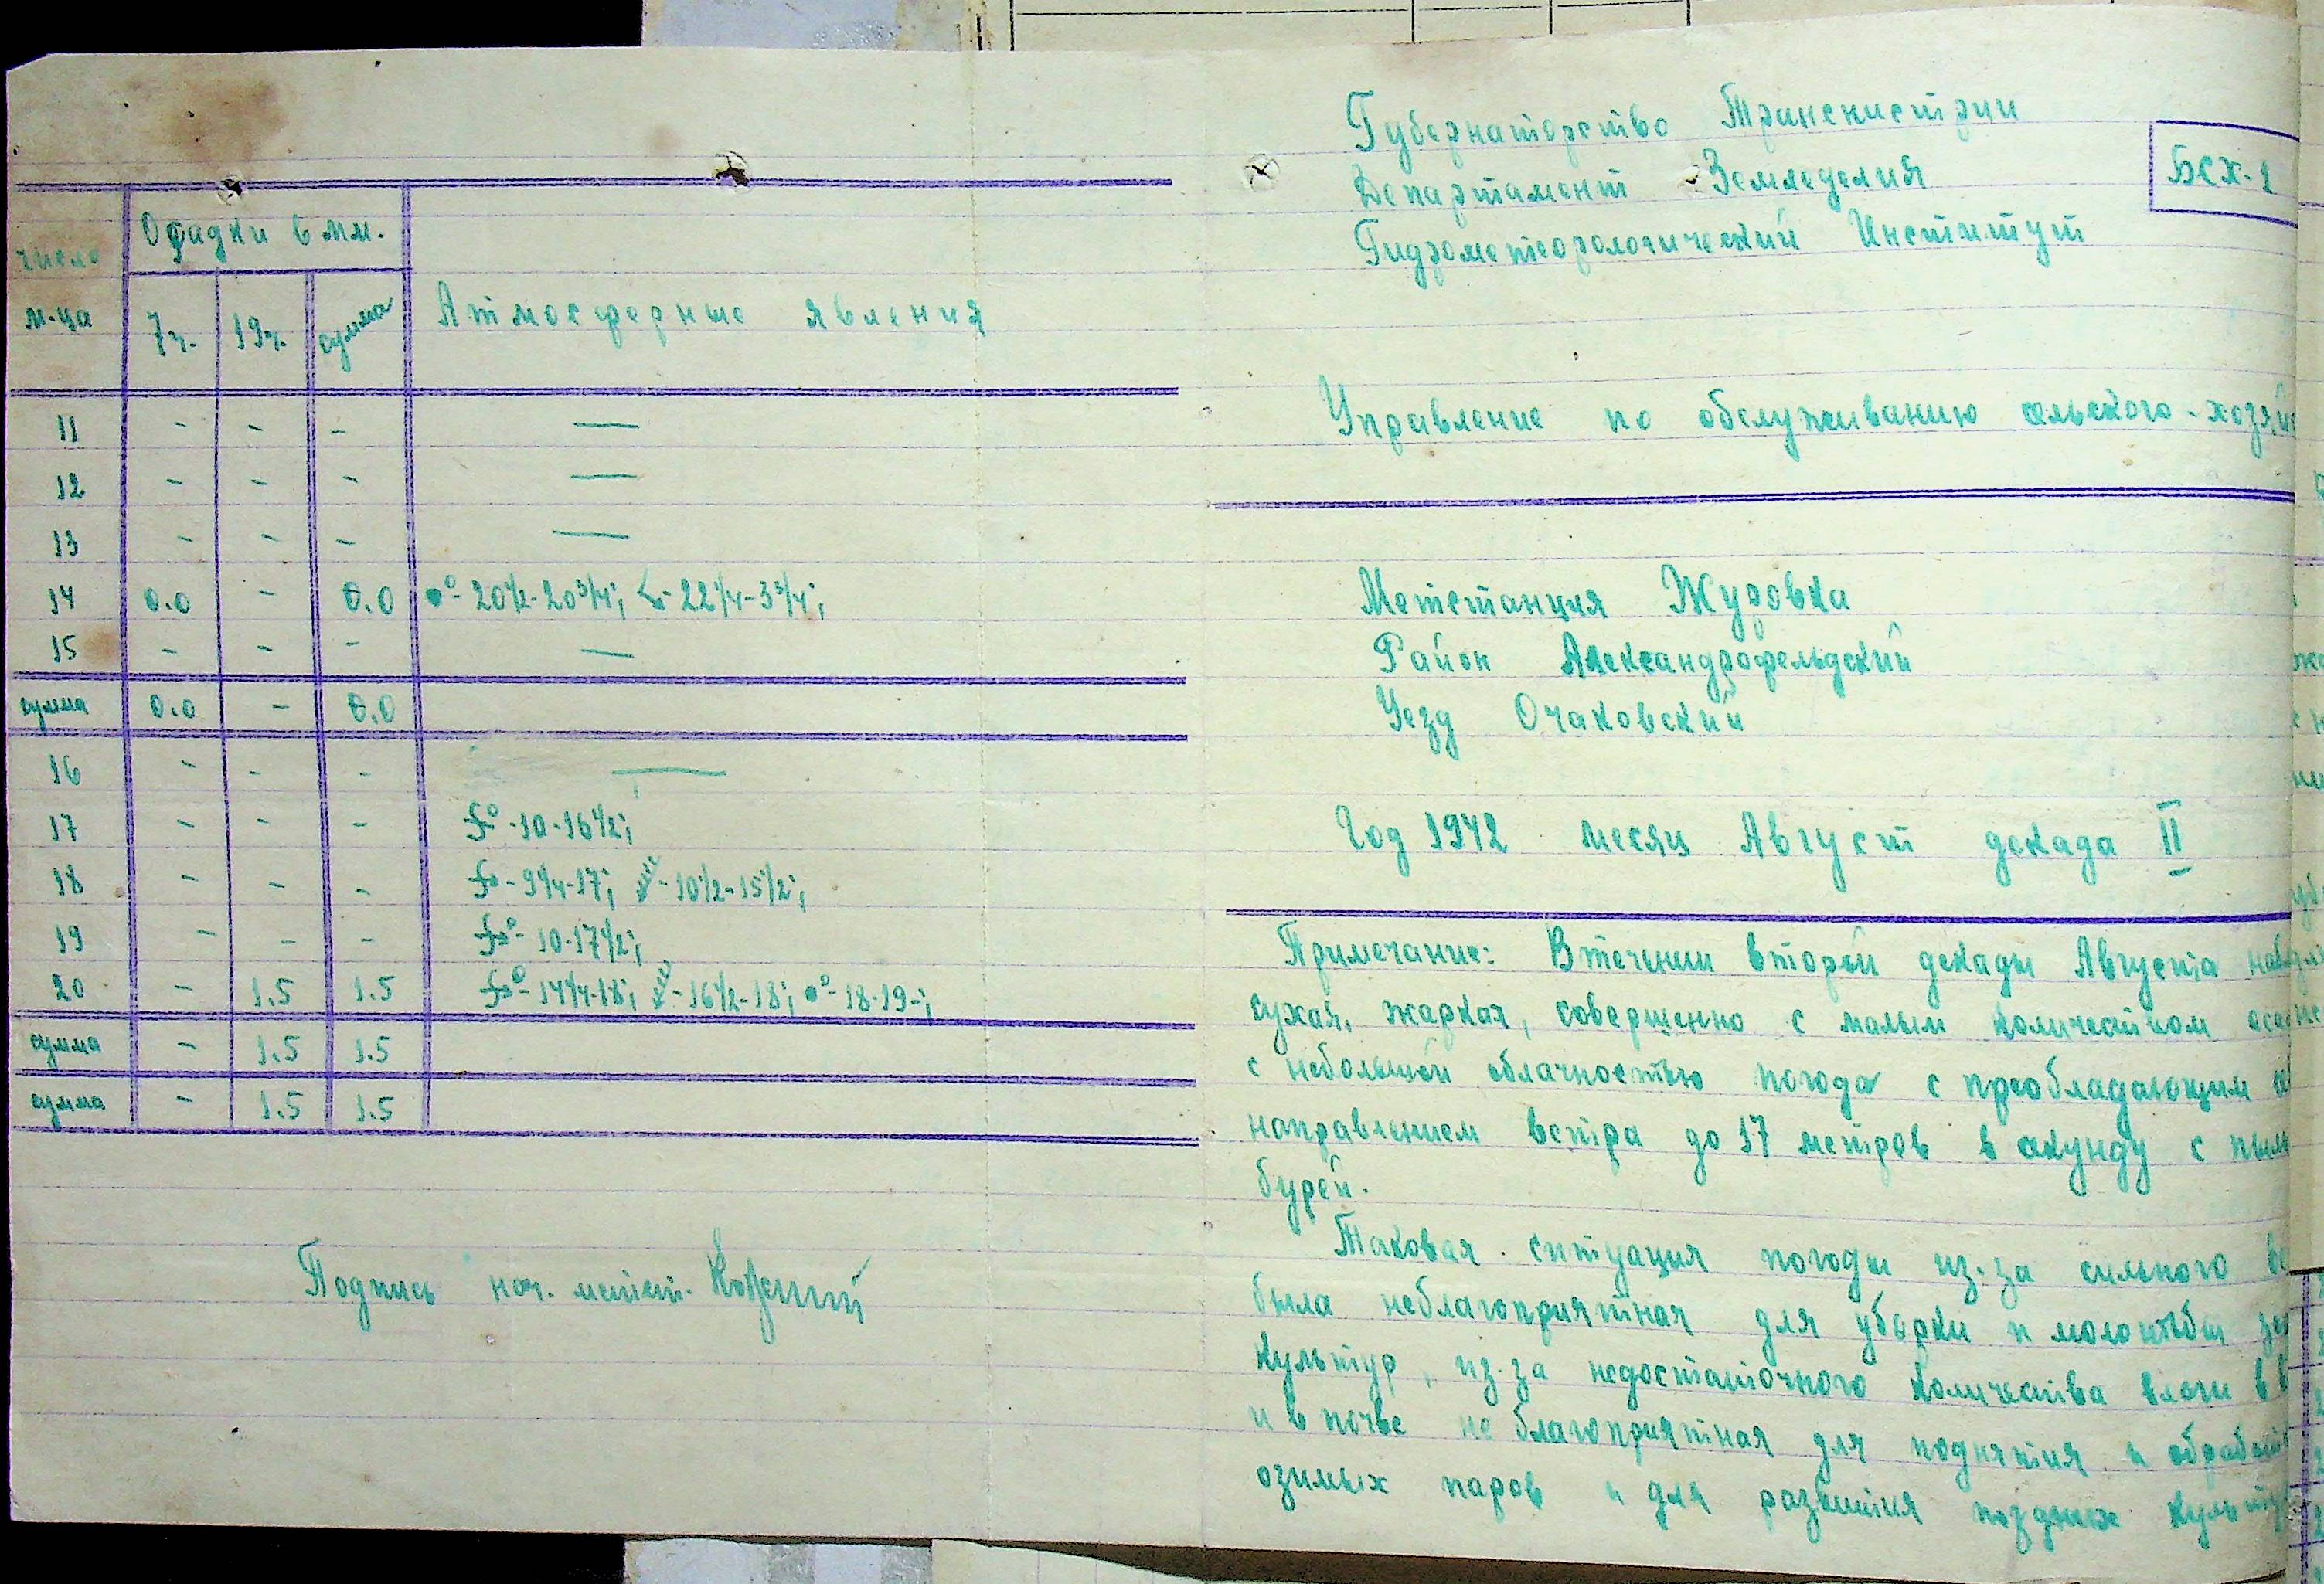 Осадки в мм.
число
м-ца 7ч. 19ч. сумма Атмосферные явления
11 - - - —
12 - - - —
13 - - - —
14 0.0 - 0.0 20½-20¾; 22¼-3¾;
15 - - - —
сумма 0.0 - 0.0
16 - - - —
17 - - - 10-16½;
18 - - - 9¼-17; 10½-15½;
19 - - - 10-17½;
20 - 1.5 1.5 14¼-18; 16½-18; 18-19-;
сумма - 1.5 1.5
сумма - 1.5 1.5
Подпись нач. метст.
Губернаторство Транснистрии
Департамент Земледелия
БСХ-1
Гидрометеорологический Институт
Управление по обслуживанию сельского-хозяй
Метстанция Журовка
Район Александрофельдский
Уезд Очаковский
Год 1942 месяц Август декада II
Примечание: В течении второй декады Августа наб
сухая, жаркая, совершенно с малым количеством оса
с небольшой облачностью погода с преобладающим
направлением ветра до 17 метров в секунду с пыль
бурей.
Таковая ситуация погоды из-за сильного ве
была неблагоприятная для уборки и молотьбы зер
культур, из-за недостаточного количества влаги в в
и в почве не благоприятная для поднятия и обработ
озимых паров и для развития поздних культу